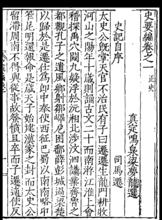 史要編卷之一
正史
真定鳴泉梁夢龍選
史記自序
司馬遷
太史公既掌天官不治民有子曰遷遷生龍門耕牧
河山之陽年十歲則誦古文二十而南游江淮上會
稽探禹穴闚九疑浮於沅湘北涉汶泗講業齊魯之
都觀孔子之遺風鄉射鄒嶧戹困鄱薛彭城過梁楚
以歸於是遷仕為郎中奉使西征巴蜀以南南略邛
笮昆明還報命是歲天子始建漢家之封而太史公
留滯周南不得與從事故發憤且卒而子遷